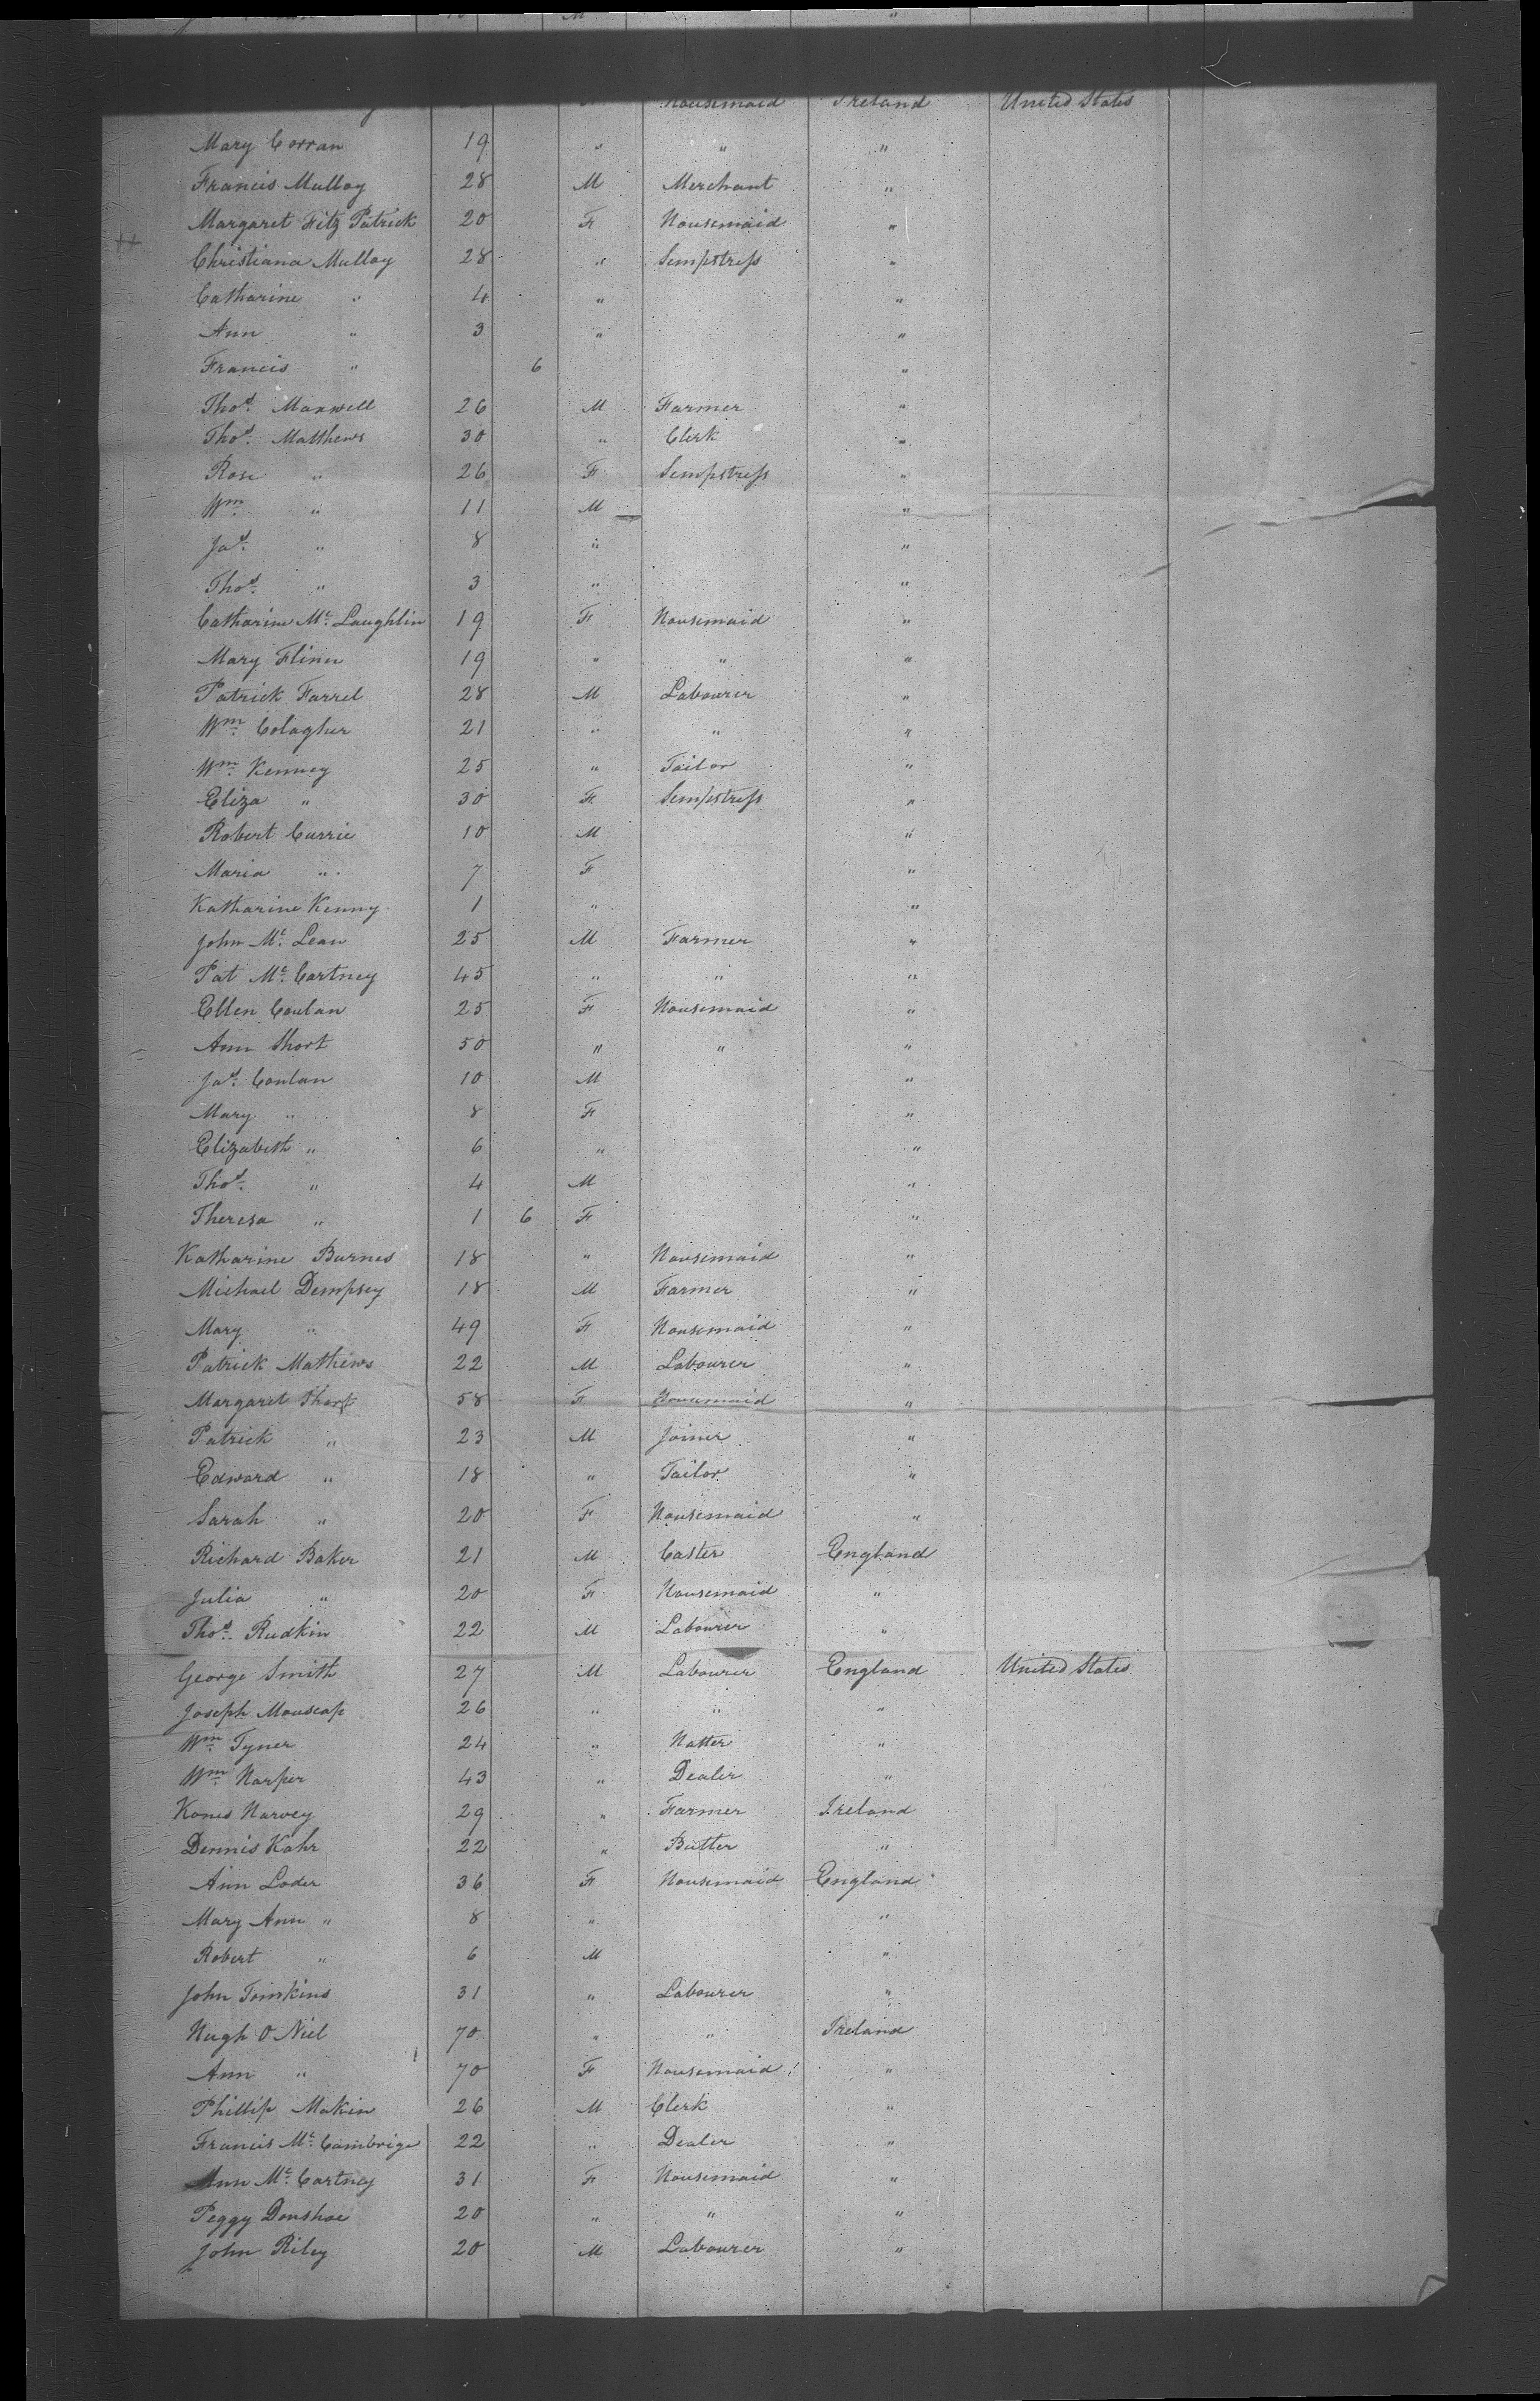 Housemaid Ireland United States
Mary Corran 19 " " "
Francis Mulloy 28 M Merchant "
Margaret Fitz Patrick 20 F Housemaid "
Christiana Mulloy 28 " Sempstress "
Catharine " 4 " "
Ann " 3 " "
Francis " 6 "
Thos. Maxwell 26 M Farmer "
Thos. Matthews 30 " Clerk "
Rose " 26 F Sempstress "
Wm. " 11 M "
Jas. " 8 " "
Thos. " 3 " "
Catharine Mc. Laughlin 19 F Housemaid "
Mary Flinn 19 " " "
Patrick Farrel 28 M Labourer "
Wm. Colagher 21 " " "
Wm. Kenney 25 " Tailor "
Eliza " 30 F Sempstress "
Robert Currie 10 M "
Maria " 7 F "
Katharine Kenny 1 " "
John Mc. Lean 25 M Farmer "
Pat Mc. Cartney 45 " " "
Ellen Conlan 25 F Housemaid "
Ann Short 50 " " "
Jas. Conlan 10 M "
Mary " 8 F "
Elizabeth " 6 " "
Thos. " 4 M "
Theresa " 1 6 F "
Katharine Burnes 18 " Housemaid "
Michael Dempsey 18 M Farmer "
Mary " 49 F Housemaid "
Patrick Mathews 22 M Labourer "
Margaret Short 58 F Housemaid "
Patrick " 23 M Joiner "
Edward " 18 " Tailor "
Sarah " 20 F Housemaid "
Richard Baker 21 M Caster England
Julia " 20 F Housemaid "
Thos. Rudkin 22 M Labourer "
George Smith 27 M Labourer England United States
Joseph Mouscap 26 " " "
Wm. Tyner 24 " Hatter "
Wm. Harper 43 " Dealer "
Harvey 29 " Farmer Ireland
Dennis Kahr 22 " Butler "
Ann Loder 36 F Housemaid England
Mary Ann " 8 " "
Robert " 6 M "
John Tomkins 31 " Labourer "
Hugh O Niel 70 " " Ireland
Ann " 70 F Housemaid "
Phillip Makin 26 M Clerk "
Francis Mc. Cambrige 22 " Dealer "
Ann Mc. Cartney 31 F Housemaid "
Peggy Donshoe 20 " " "
John Riley 20 M Labourer "